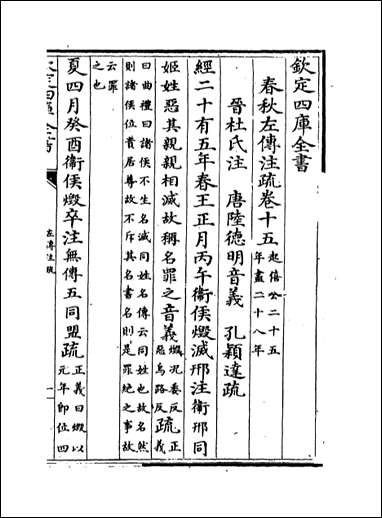 欽定四庫全書
春秋左傳注疏卷十五起僖公二十五年盡二十八年
晉杜氏注　唐陸德明音義　孔穎達疏
經二十有五年春王正月丙午衞侯燬滅邢注衞邢同
姬姓惡其親親相滅故稱名罪之音義燬況委反惡烏路反疏正義
曰曲禮曰諸侯不生名滅同姓名傳云同姓也故名然
則諸侯位貴居尊故不斥其名書名則是罪絶之事故
云罪之也
夏四月癸酉衞侯燬卒注無傳五同盟疏正義曰燬以元年即位四
左傳注疏
一